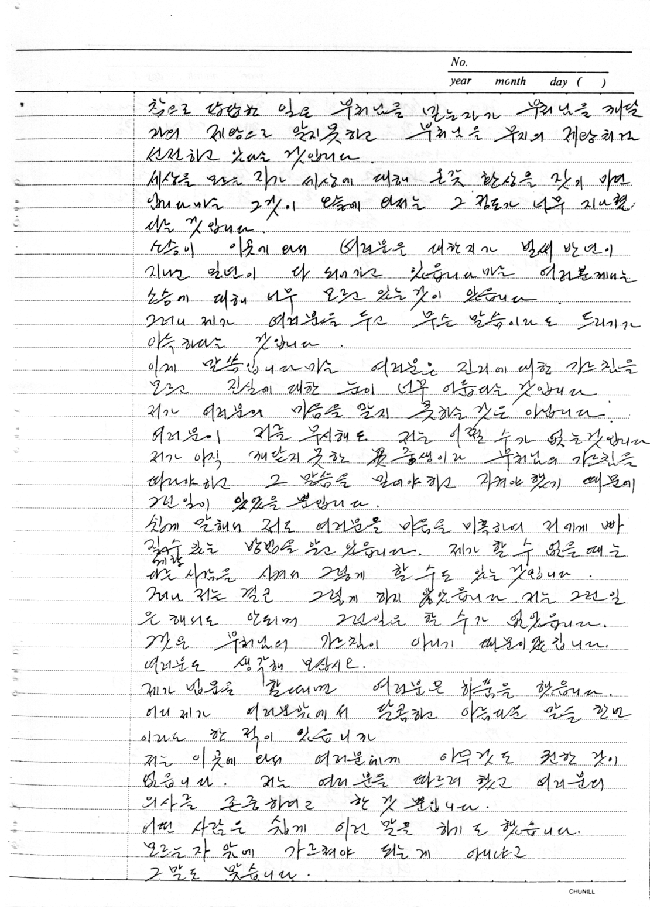 No.
year month day ( )
참으로 답답한 일로 부처님을 믿는자가 부처님을 깨달
자의 제왕으로 알지못하고 부처님을 무지의 제왕처럼
선전하고 있다는 것입니다.
세상을 모르는 자가 세상에 대해 온갖 환상을 갖이 마련
입니다마는 그것이 오늘에 와서는 그 정도가 너무 지나쳤
다는 것입니다.
소승이 이곳에 와서 여러분을 대한지가 벌써 반년이
지나고 일년이 다 되어가고 있읍니다마는 여러분께서는
소승에 대해 너무 모르고 있는 것이 있읍니다.
그러니 제가 여러분을 두고 무슨 말씀이라도 드리기가
어눅하다는 것입니다.
이제 말씀입니다마는 여러분은 진리에 대한 가르침을
모르고 진실에 대한 눈이 너무 어둡다는 것입니다.
제가 여러분의 마음을 알지 못하는 것은 아닙니다.
여러분이 저를 무시해도 저는 어쩔 수가 없는것입니다
제가 아직 깨닫지 못한 중생이라 부처님의 가르침을
따라야하고 그 말씀을 믿어야하고 지켜야 했기 때문에
그런일이 있었을 뿐입니다.
쉽게 말해서 저도 여러분을 마음을 미혹하여 저에게 빠
질수 있는 방법을 알고 있읍니다. 제가 할 수 없을 때는
다른 사람을 시켜서 그렇게 할 수도 있는 것입니다.
그러나 저는 결코 그렇게 하지 않았읍니다 저는 그런일
은 해서도 안되며 그런일은 할 수가 없었읍니다.
그것은 부처님의 가르침이 아니기 때문이였입니다.
여러분도 생각해 보십시오.
제가 법문을 할때면 여러분은 하품을 했읍니다.
어디 제가 여러분앞에서 달콤하고 아늑다운 말을 한번
이라도 한 적이 있읍니까
저는 이곳에 와서 여러분에게 아무것도 권한 것이
없읍니다. 저는 여러분을 따르려 했고 여러분의
의사를 존중하려고 한 것 뿐입니다.
어떤 사람은 쉽게 이런 말을 하기도 했읍니다.
모르는자 앞에 가르쳐야 되는게 아니냐고
그 말도 맞습니다.
CHUNILL